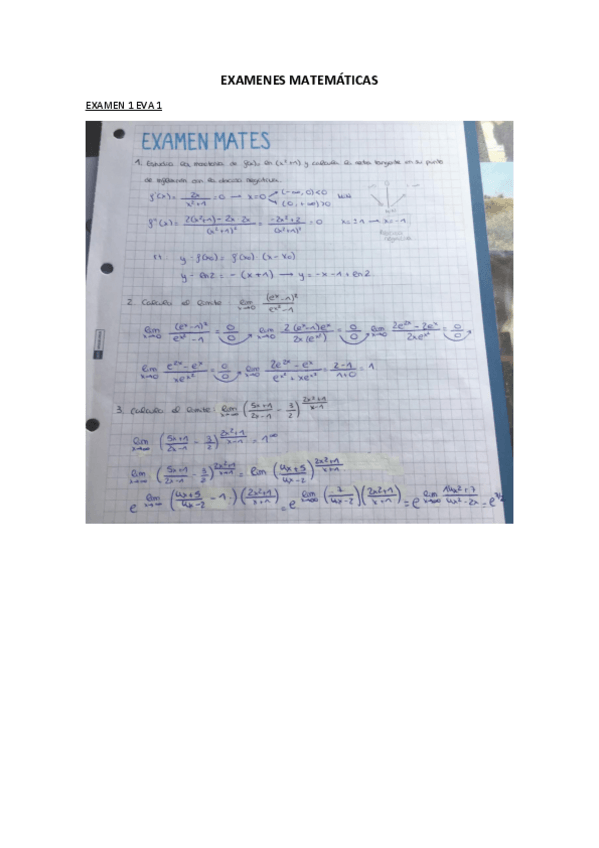 EXAMENES MATEMÁTICAS
EXAMEN 1 EVA 1
EXAMEN MATES
1. Estudia la monotonía de f(x) = ln (x²+1) y calcula la recta tangente en su punto
de inflexión con la abscisa negativa.
f'(x) = 2x/(x²+1) = 0 → x=0 (-∞, 0) <0
(0, +∞) >0
f''(x) = (2(x²+1) - 2x·2x)/(x²+1)² = (-2x²+2)/(x²+1)² = 0 x=±1 → x=-1
y - f(x₀) = f'(x₀) · (x-x₀)
y - ln2 = -(x+1) → y = -x-1+ln2
2. Calcula el límite lim x→0 (eˣ-1)²/(e^x²-1)
lim x→0 (eˣ-1)²/(e^x²-1) = 0/0, lim x→0 2(eˣ-1)eˣ/(2x(e^x²)) = 0/0, lim x→0 (2e²ˣ-2eˣ)/(2xe^x²) = 0/0,
lim x→0 (e²ˣ-eˣ)/(xe^x²) = 0/0, lim x→0 (2e²ˣ-eˣ)/(e^x²+xe^x²) = (2-1)/(1+0) = 1
3. Calcula el límite: lim x→∞ ((5x+1)/(2x-1) - 3/2)^((2x²+1)/(x-1))
lim x→∞ ((5x+1)/(2x-1) - 3/2)^((2x²+1)/(x-1)) = 1^∞
lim x→∞ ((5x+1)/(2x-1) - 3/2)^((2x²+1)/(x+1)) = lim ((4x+5)/(4x-2))^((2x²+1)/(x+1))
e^(lim x→∞ ((4x+5)/(4x-2) - 1)·((2x²+1)/(x+1))) = e^(lim x→∞ (7/(4x-2))((2x²+1)/(x+1))) = e^(lim x→∞ (14x²+7)/(4x²-2x)) = e^(7/2)